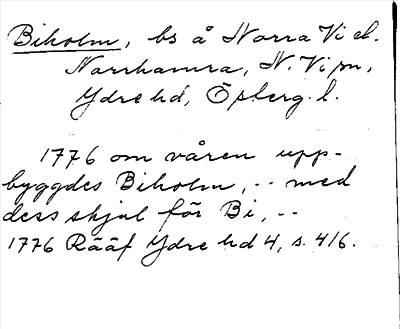 Biholm, bs å Norra Vi el.
Norrhamra, N. Vi sn,
Ydre hd, Öpberg. l.
1776 om våren upp-
byggdes Biholm, -- med
dess skjul för Bi, --
1776 Rääf Ydre hd 4, s. 416.